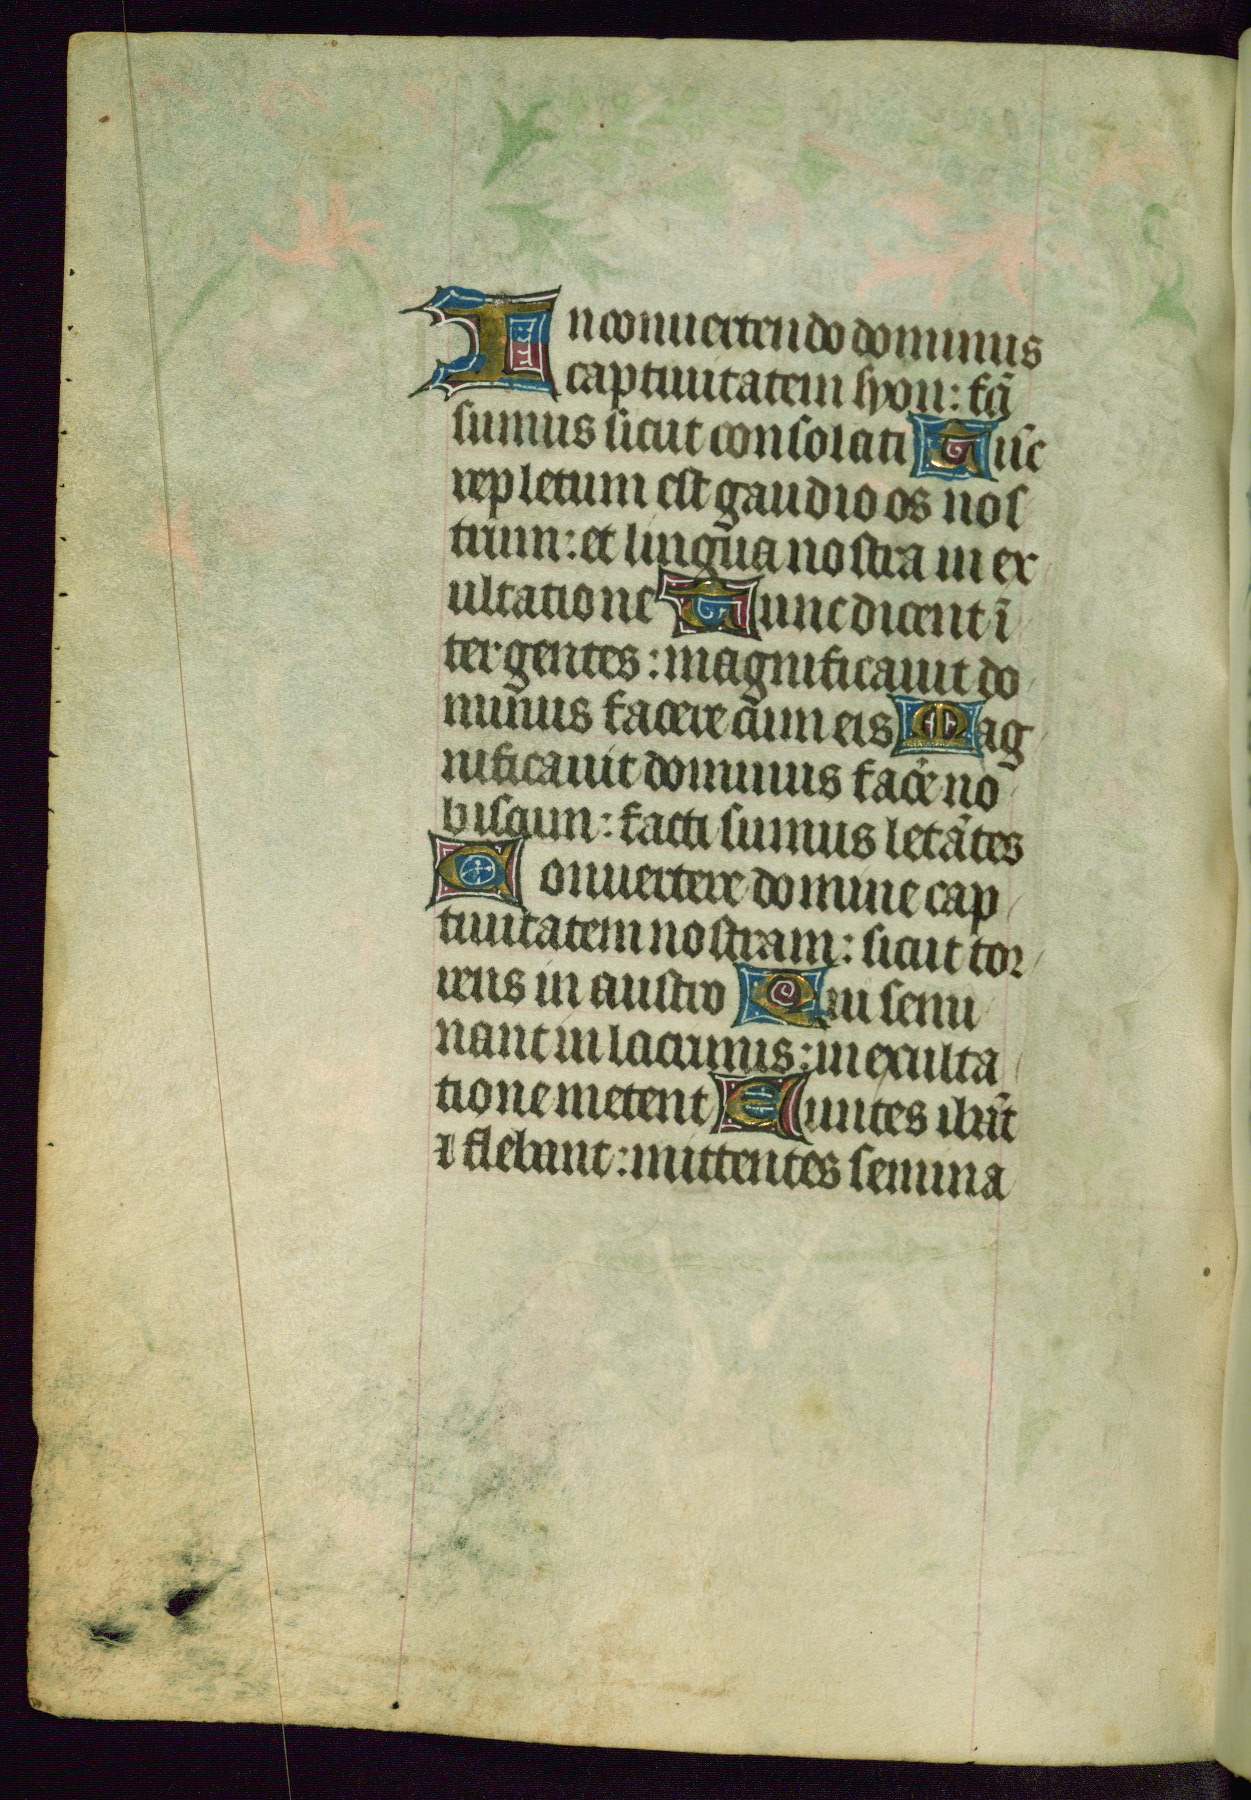 In conuertendo dominus
captiuitatem syon: fcī
sumus sicut consolati Tūc
repletum est gaudio os nos
trum: et lingua nostra in ex
ultatione Tunc dicent ī
ter gentes: magnificauit do
minus facere cum eis Mag
nificauit dominus facẽ no
biscum: facti sumus letātes
Conuertere domine cap
tiuitatem nostram: sicut tor
rens in austro Qui semi
nant in lacrimis: in exulta
tione metent Euntes ibāt
⁊ flebant: mittentes semina